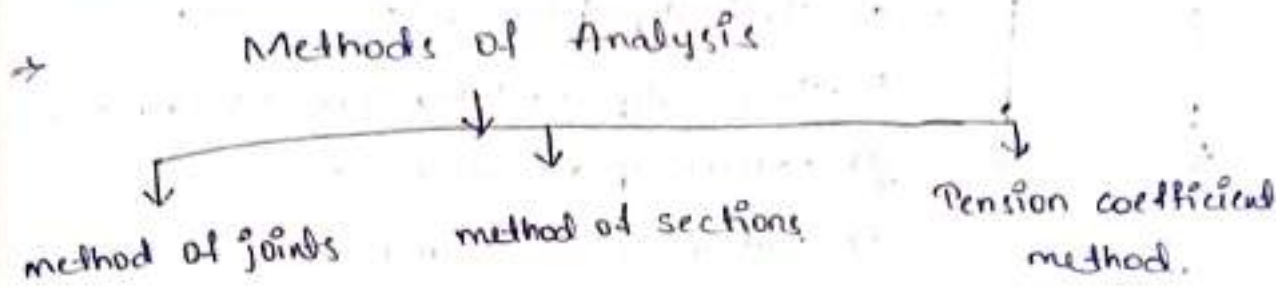 → Methods of Analysis
method of joints
method of sections
Tension coefficient
method.